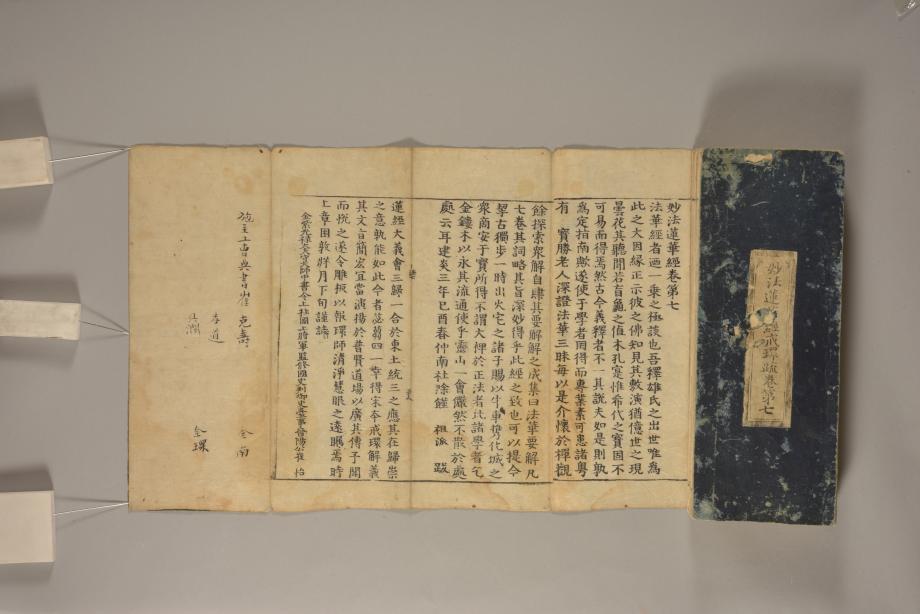 妙法蓮華經戒環疏卷第七
妙法蓮華經卷第七
法華經者迺一乗之極談也吾釋雄氏之出世唯爲
此之大因緣正示彼之佛知見其數演猶億世之現
曇花其聽聞若盲龜之值木孔寔惟希代之寶固不
可易而得焉然古今義釋者不一其說夫如是則孰
爲定指南歟遂使于學者罔得而專業素可患諸粤
有 寶勝老人深證法華三昧每以是介懷於禪觀
餘探索衆解自肆其要解解之成集曰法華要解凡
七卷其詞略其旨深妙得乎此經之致也可以提今
挈古獨步一時出火宅之諸子賜以牛車携化城之
衆商安于寶所得不謂大裨於正法者比諸學者乞
金鏤木以永其流通使乎靈山一會儼然不散於處
處云耳建炎三年己酉春仲南社除饉 祖派 跋
蓮經大義會三歸一合於東土統三之應其在歸崇
之意孰能如此今者苾蒭四一幸得宋夲戒環解義
其文言簡宏冝當演揚於普賢道場以廣其傳予聞
而悦之遂令雕板以報環師清淨慧眼之遠矚焉時
上章困敦辜月下旬謹誌
金紫光祿大夫守太師中書令上柱國上將軍監修國史判御史臺事晉陽公崔 怡
施主工曹典書崔 克壽 金南
李道
金環